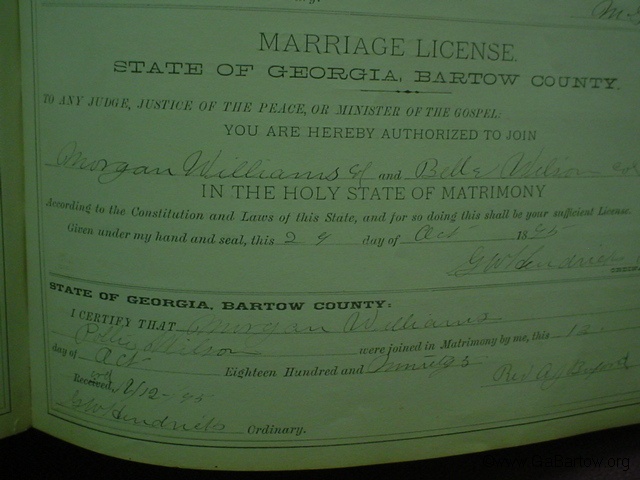 MARRIAGE LICENSE.
STATE OF GEORGIA, BARTOW COUNTY.
TO ANY JUDGE, JUSTICE OF THE PEACE, OR MINISTER OF THE GOSPEL:
YOU ARE HEREBY AUTHORIZED TO JOIN
Morgan Williams and Belle Wilson
IN THE HOLY STATE OF MATRIMONY
According to the Constitution and Laws of this State, and for so doing this shall be your sufficient License.
Given under my hand and seal, this day of Oct 1895
GW Hendricks
STATE OF GEORGIA, BARTOW COUNTY:
I CERTIFY THAT Morgan Williams
Wilson were joined in Matrimony by me, this
day of Oct Eighteen Hundred and
Received, Rev
GW Hendricks Ordinary.
www.GaBartow.org